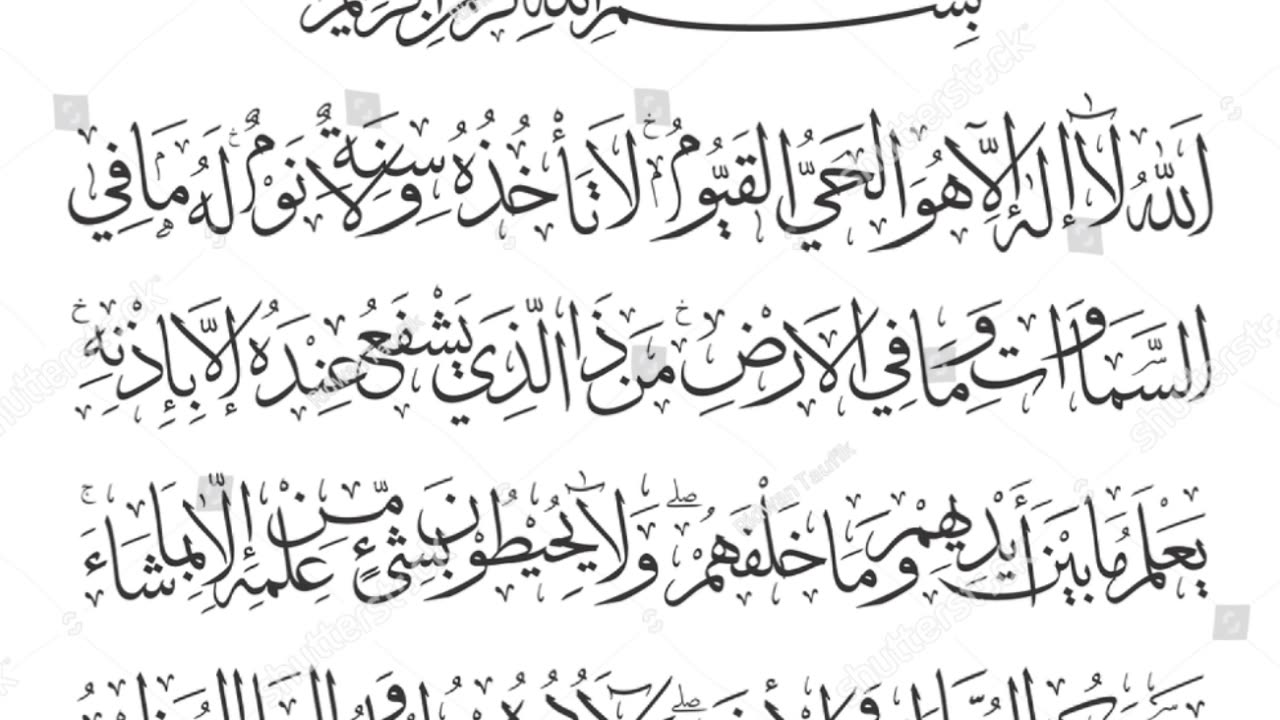 بسم الله الرحمن الرحيم
الله لا إله إلا هو الحي القيوم لا تأخذه سنة ولا نوم له ما في
السماوات وما في الارض من ذا الذي يشفع عنده إلا بإذنه
يعلم ما بين أيديهم وما خلفهم ولا يحيطون بشيء من علمه إلا بما شاء